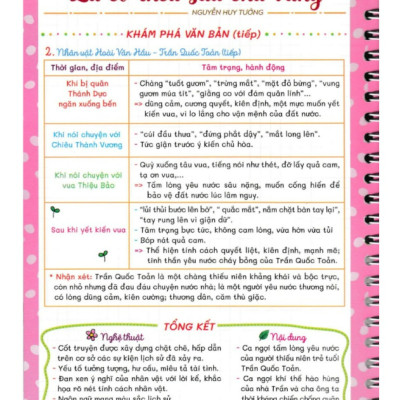 Lá cờ thêu sáu chữ vàng
NGUYỄN HUY TƯỞNG
KHÁM PHÁ VĂN BẢN (tiếp)
2. Nhân vật Hoài Văn Hầu - Trần Quốc Toản (tiếp)
Thời gian, địa điểm
Tâm trạng, hành động
Khi bị quân
Thánh Dực
ngăn xuống bến
- Chàng "tuốt gươm", "trừng mắt", "mặt đỏ bừng", "vung
gươm múa tít", "giằng co với đám quân lính"...
=> dũng cảm, cương quyết, kiên định, một mực muốn yết
kiến vua, vì lo lắng cho vận mệnh của đất nước.
Khi nói chuyện với
Chiêu Thành Vương
- "cúi đầu thưa", "đứng phắt dậy", "mắt long lên".
- Tức giận trước ý kiến chủ hòa.
Khi nói chuyện với
với vua Thiệu Bảo
- Quỳ xuống tâu vua, tiếng nói như thét, đỡ lấy quả cam,
tạ ơn vua,...
=> Tấm lòng yêu nước sâu nặng, muốn cống hiến để
bảo vệ đất nước lúc lâm nguy.
Sau khi yết kiến vua
- "lủi thủi bước lên bờ", " quắc mắt", nắm chặt bàn tay lại",
"tay rung lên vì giận dữ".
- Tâm trạng bực tức, không cam lòng, vừa hờn vừa tủi
- Bóp nát quả cam.
=> Thể hiện tính cách quyết liệt, kiên định, mạnh mẽ;
tinh thần yêu nước cháy bỏng của Trần Quốc Toản.
* Nhận xét: Trần Quốc Toản là một chàng thiếu niên khảng khái và bộc trực,
còn nhỏ nhưng đã đau đáu chuyện nước nhà; là một người yêu nước thương nòi,
có lòng dũng cảm, kiên cường; thương dân, căm thù giặc.
TỔNG KẾT
Nghệ thuật
- Cốt truyện được xây dựng chặt chẽ, hấp dẫn
trên cơ sở các sự kiện lịch sử đã xảy ra.
- Yếu tố tưởng tượng, hư cấu, miêu tả tài tình.
- Đan xen ý nghĩ của nhân vật với lời kể, khắc
họa rõ nét tính cách nhân vật.
- Ngôn ngữ mang màu sắc lịch sử
Nội dung
- Ca ngợi tấm lòng yêu nước
của người thiếu niên trẻ tuổi
Trần Quốc Toản.
- Ca ngợi khí thế hào hùng
của nhà Trần và cha ông ta
thời kháng chiến chống quân